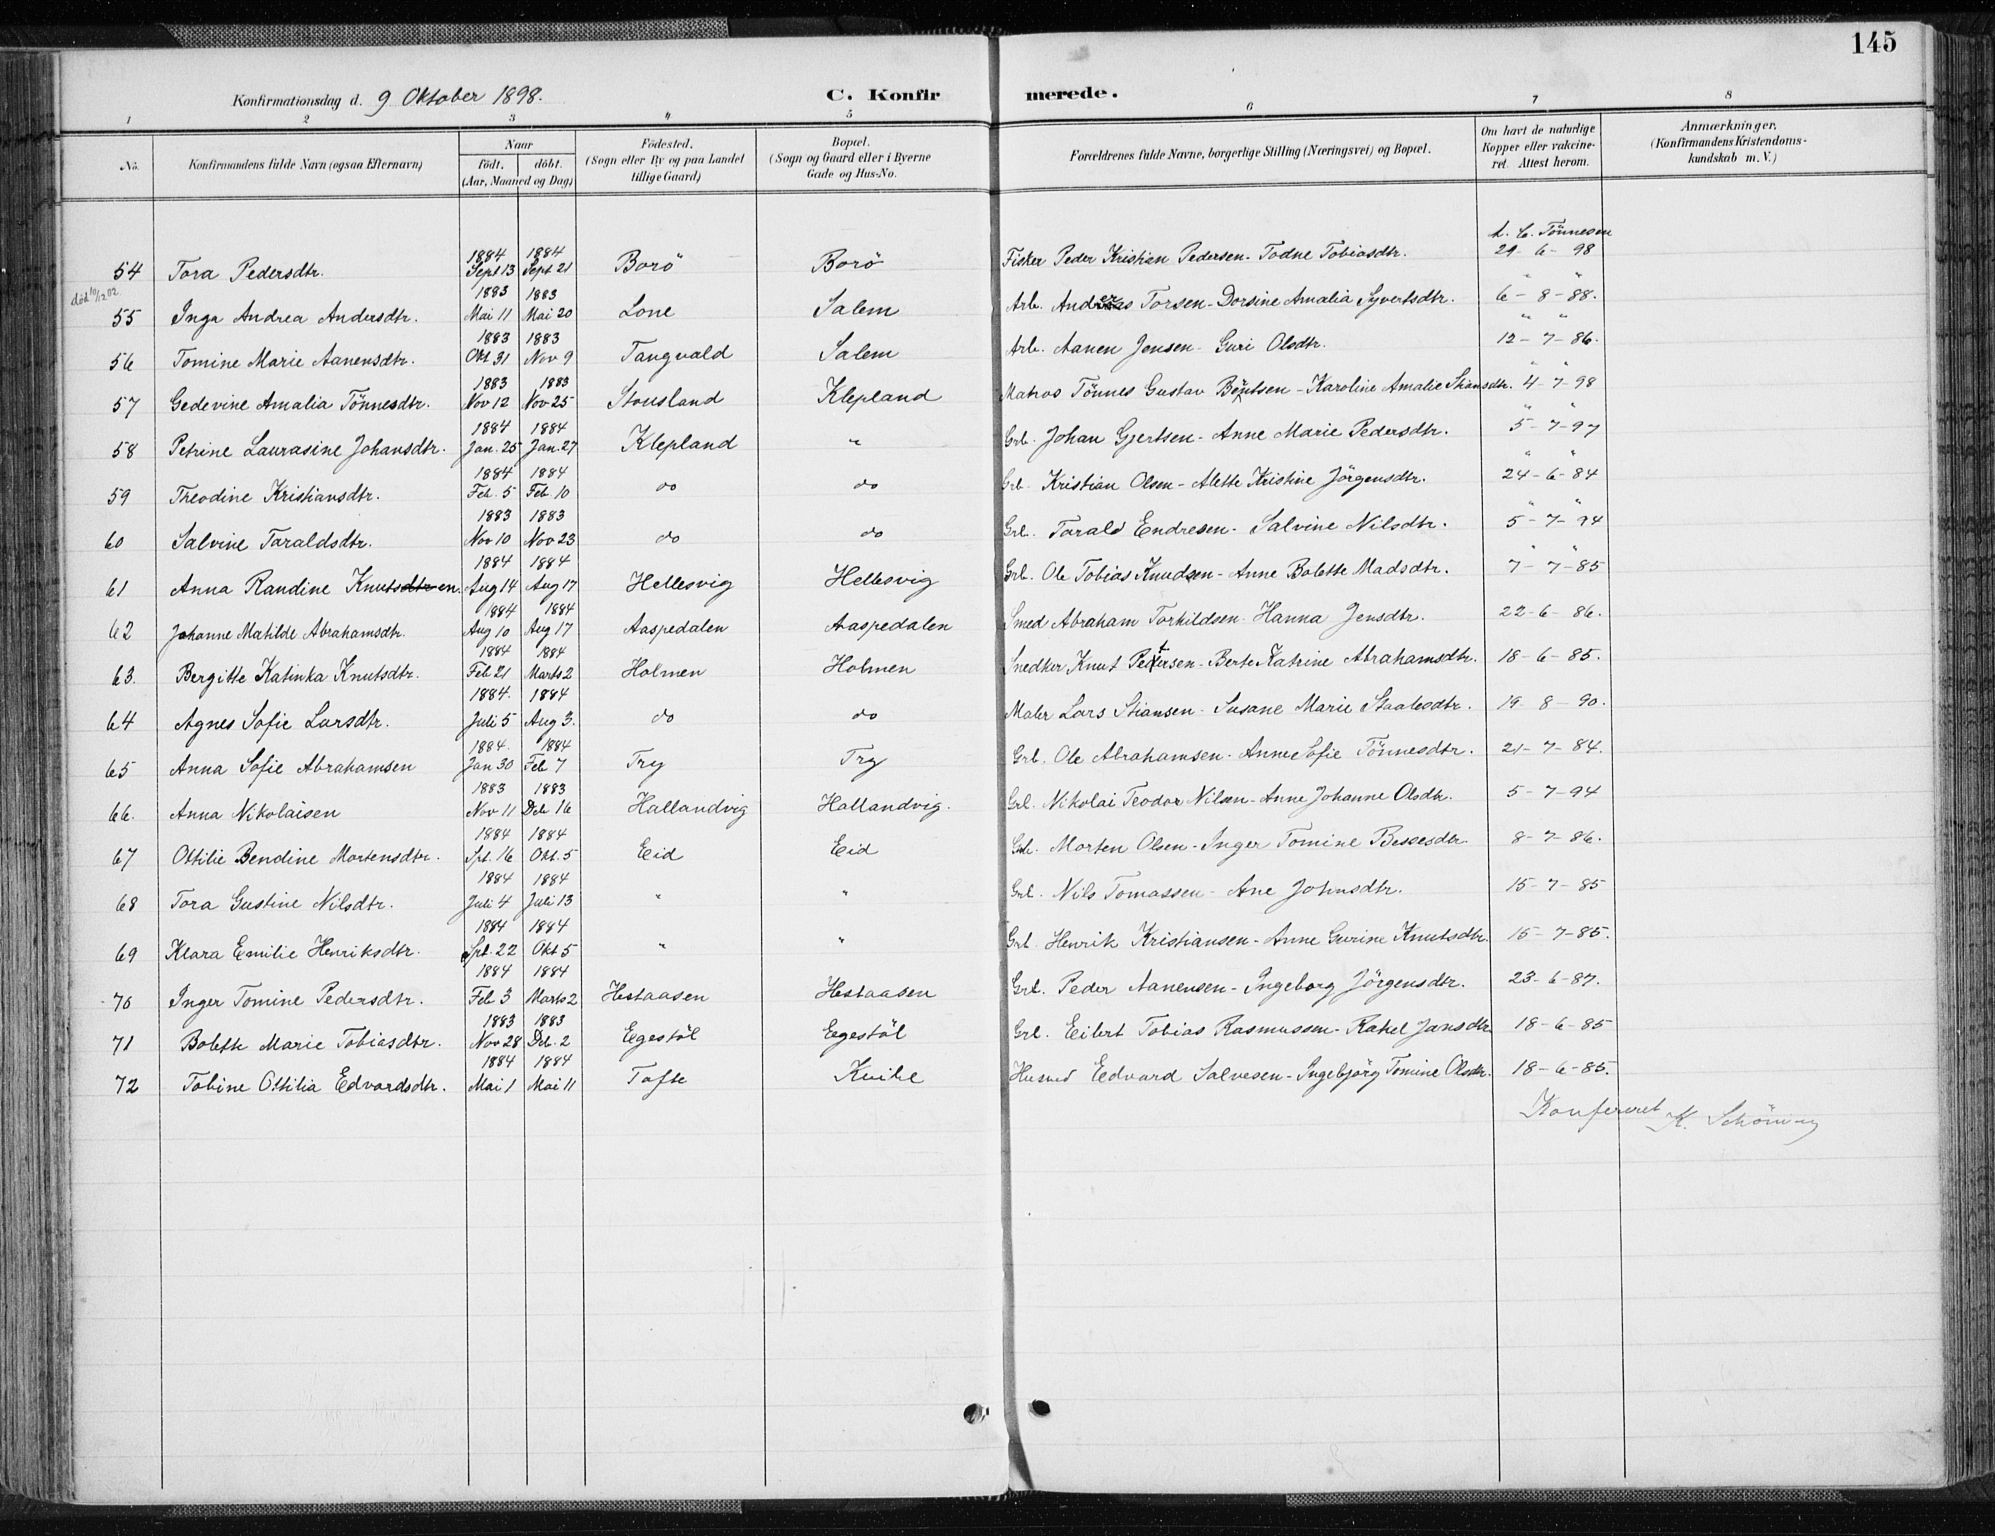 145
Konfirmationsdag d. 9 Oktober 1898. C. Konfirmerede.
1 2 3 4 5 6 7 8
No. Konfirmandens fulde Navn (ogsaa Efternavn) Naar født. døbt. (Aar, Maaned og Dag) Fødested. (Sogn eller By og paa Landet tillige Gaard) Bopæl. (Sogn og Gaard eller i Byerne Gade og Hus-No. Forældrenes fulde Navne, borgerlige Stilling (Næringsvei) og Bopæl. Om havt de naturlige Kopper eller vakcineret. Attest herom. Anmærkninger. (Konfirmandens Kristendomskundskab m. V.)
54 Tora Pedersdtr. 1884 Sept 13 1884 Sept 21 Borö Borö Fisker Peder Kristian Pedersen - Todne Tobiasdtr. A. C. Tönnesen 29-6-98
død 10/12 02
55 Inga Andrea Andersdtr. 1883 Mai 11 1883 Mai 20 Lone Salem Arb. Anders Torsen - Dorsine Amalia Syvertsdtr. " " 6-8-88.
56 Tomine Marie Aanensdtr. 1883 Okt 31 1883 Nov 9 Tangvald Salem Arb. Aanen Jensen - Guri Olsdtr. " " 12-7-86.
57 Gedevine Amalia Tönnesdtr. 1883 Nov 12 1883 Nov 25 Stousland Klepland Matros Tönnes Gustav Bentsen - Karoline Amalie Stiansdtr. " " 4-7-98
58 Petrine Laurasine Johansdtr. 1884 Jan. 25 1884 Jan. 27 Klepland " Grb. Johan Gjertsen - Anne Marie Pedersdtr. " " 5-7-97
59 Theodine Kristiansdtr. 1884 Feb. 5 1884 Feb. 10 do do Grb. Kristian Olsen - Alette Kristine Jörgensdtr. " " 24-6-84
60 Salvine Taraldsdtr. 1883 Nov 10 1883 Nov 23 do do Grb. Tarald Endresen - Salvine Nilsdtr. " " 5-7-94
61 Anna Randine Knutsdtr en. 1884 Aug 14 1884 Aug 17 Hellesvig Hellesvig Grb. Ole Tobias Knudsen - Anne Bolette Madsdtr. " " 7-7-85
62 Johanne Matilde Abrahamsdtr. 1884 Aug 10 1884 Aug 17 Aaspedalen Aaspedalen Smed Abraham Torkildsen - Hanna Jensdtr. 22-6-86.
63. Bergitte Katinka Knutsdtr. 1884 Feb 21 1884 Marts 2 Holmen Holmen Snedker Knut Petersen - Berte Katrine Abrahamsdtr. 18-6-85.
64 Agnes Sofie Larsdtr. 1884. Juli 5 1884 Aug 3. do do Maler Lars Stiansen - Susane Marie Staalesdtr. 19-8-90.
65 Anna Sofie Abrahamsen 1884. Jan 30 1884 Feb 7 Try Try Grb. Ole Abrahamsen - Anne Sofie Tönnesdtr. 21-7-84.
66. Anna Nikolaisen 1883 Nov 11 1883 Deb 16 Hallandvig Hallandvig. Grb. Nikolai Teodor Nilsen - Anne Johanne Olsdtr. 5-7-94
67 Ottilie Bendine Mortensdtr. 1884 Spt. 16 1884 Okt. 5 Eid Eid Grb. Morten Olsen - Inger Tomine Bessesdtr. 8-7-86.
68 Tora Gustine Nilsdtr. 1884 Juli 4 1884 Juli 13 " " Grb. Nils Tomassen - Ane Johnsdtr. 15-7-85
69 Klara Emilie Henriksdtr. 1884 Spt. 22 1884 Okt 5 " " Grb. Henrik Kristiansen - Anne Gurine Knutsdtr. 15-7-85.
70 Inger Tomine Pedersdtr. 1884 Feb 3 1884 Marts 2 Hestaasen Hestaasen Grb. Peder Aanensen - Ingeborg Jörgensdtr. 23-6-87.
71 Bolette Marie Tobiasdtr. 1883 Nov 28 1883 Deb. 2 Egestöl Egestöl Grb. Eilert Tobias Rasmussen - Rakel Jansdtr 18-6-85
72 Tobine Ottilia Edvardsdtr. 1884 Mai 1 1884 Mai 11 Tofte Kvibe Husmd Edvard Salvesen - Ingebjörg Tomine Olsdtr. 18-6-85.
Konfereret K. Schöning